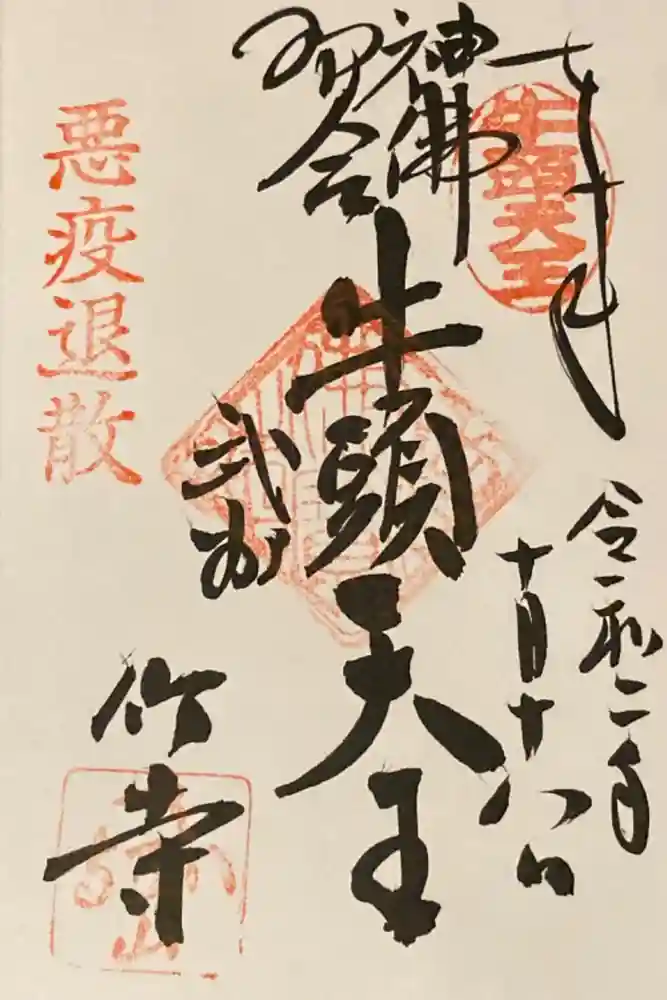 奉拝
令和二年
十月十八日
牛頭天王
神佛
習合
牛頭天王
武州
竹寺
悪疫退散